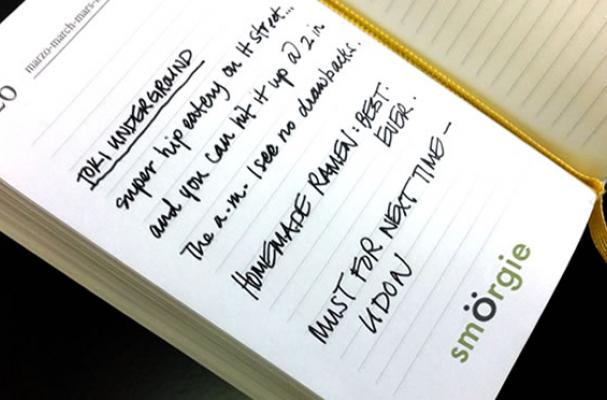 20
marzo-march-mars-
TOKI UNDERGROUND
super hip eatery on H street...
and you can hit it up @ 2 in
the a.m. I see no drawbacks.
HOMEMADE RAMEN: BEST.
EVER.
MUST FOR NEXT TIME -
UDON
smörgie